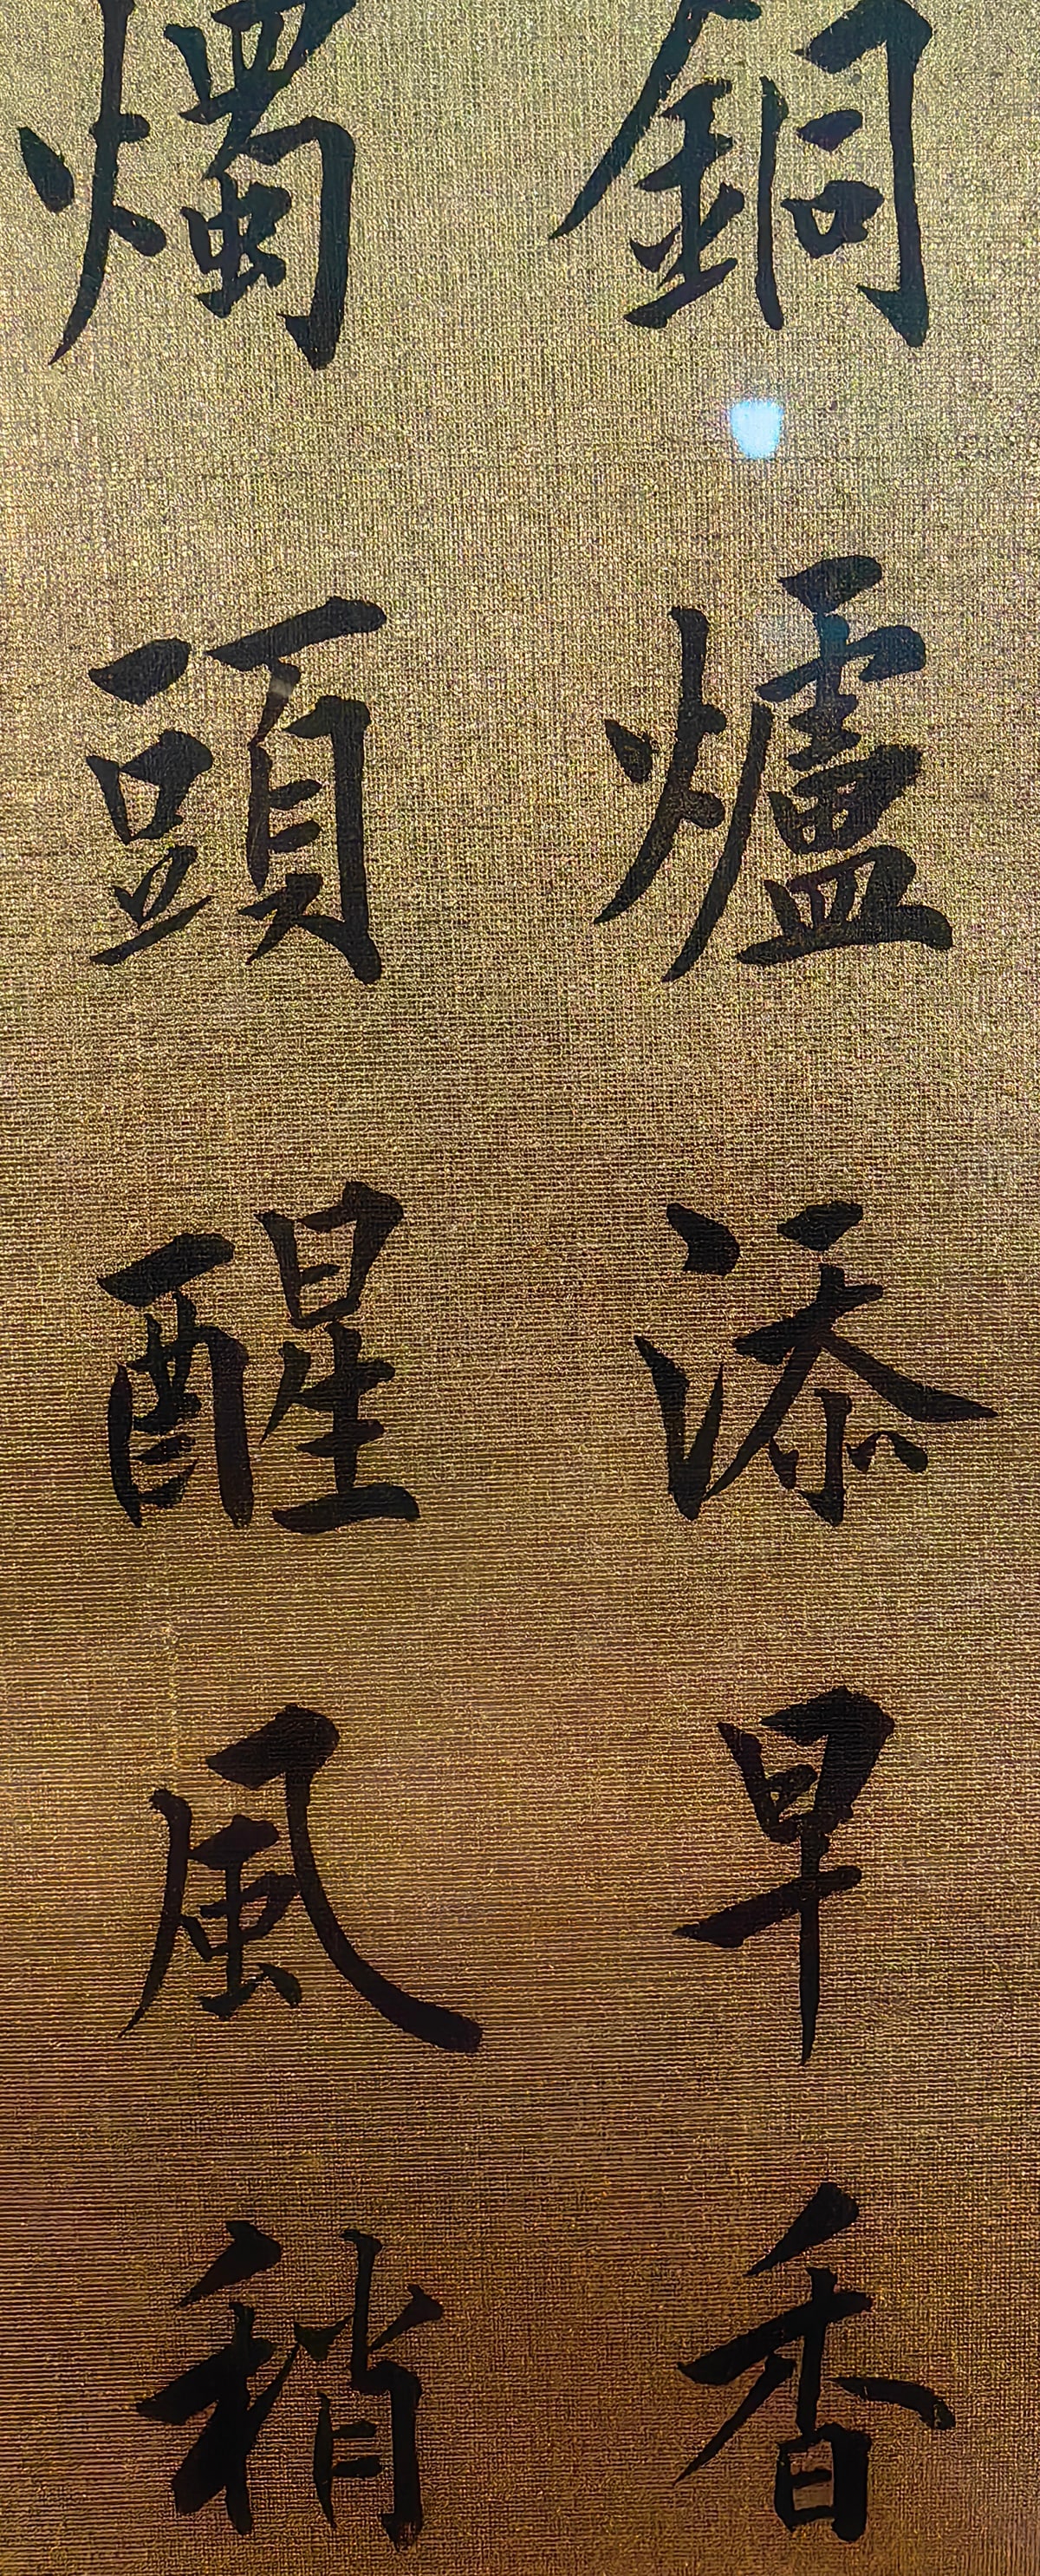 銅爐添早香
燭頭醒風稍